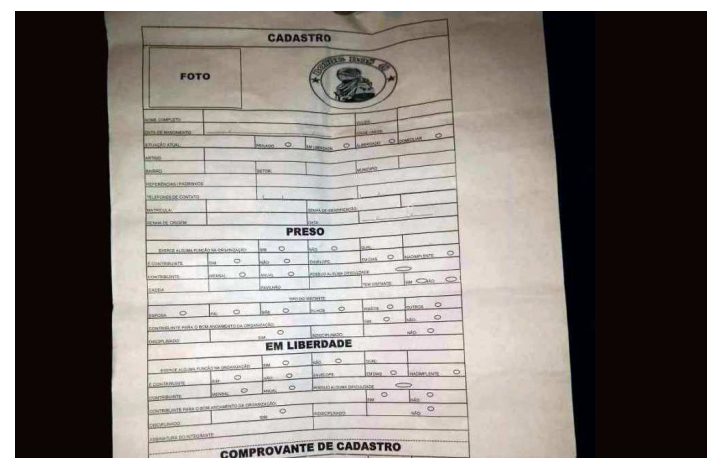 CADASTRO
FOTO
NOME COMPLETO
VULGO
DATA DE NASCIMENTO
SITUAÇÃO ATUAL
PRIVADO EM LIBERDADE ALBERGADO DOMICILIAR
ARTIGO
BAIRRO SETOR MUNICIPIO
REFERÊNCIAS / PADRINHOS
TELEFONES DE CONTATO
MATRÍCULA SENHA DE IDENTIFICAÇÃO
SENHA DE ORDEM DATA
PRESO
EXERCE ALGUMA FUNÇÃO NA ORGANIZAÇÃO SIM NÃO QUAL
É CONTRIBUINTE SIM NÃO ENVELOPE EM DIAS INADIMPLENTE
CONTRIBUINTE MENSAL ANUAL POSSUI ALGUMA DIFICULDADE
CADEIA PAVILHÃO TEM VISITANTE SIM NÃO
TIPO DO VISITANTE
ESPOSA PAI MÃE FILHOS IRMÃOS OUTROS
CONTRIBUINTE PARA O BOM ANDAMENTO DA ORGANIZAÇÃO SIM NÃO
DISCIPLINADO SIM INDISCIPLINADO NÃO
EM LIBERDADE
EXERCE ALGUMA FUNÇÃO NA ORGANIZAÇÃO SIM NÃO QUAL
É CONTRIBUINTE SIM NÃO ENVELOPE EM DIAS INADIMPLENTE
CONTRIBUINTE MENSAL ANUAL POSSUI ALGUMA DIFICULDADE
CONTRIBUINTE PARA O BOM ANDAMENTO DA ORGANIZAÇÃO SIM NÃO
DISCIPLINADO SIM INDISCIPLINADO NÃO
ASSINATURA DO INTEGRANTE
COMPROVANTE DE CADASTRO